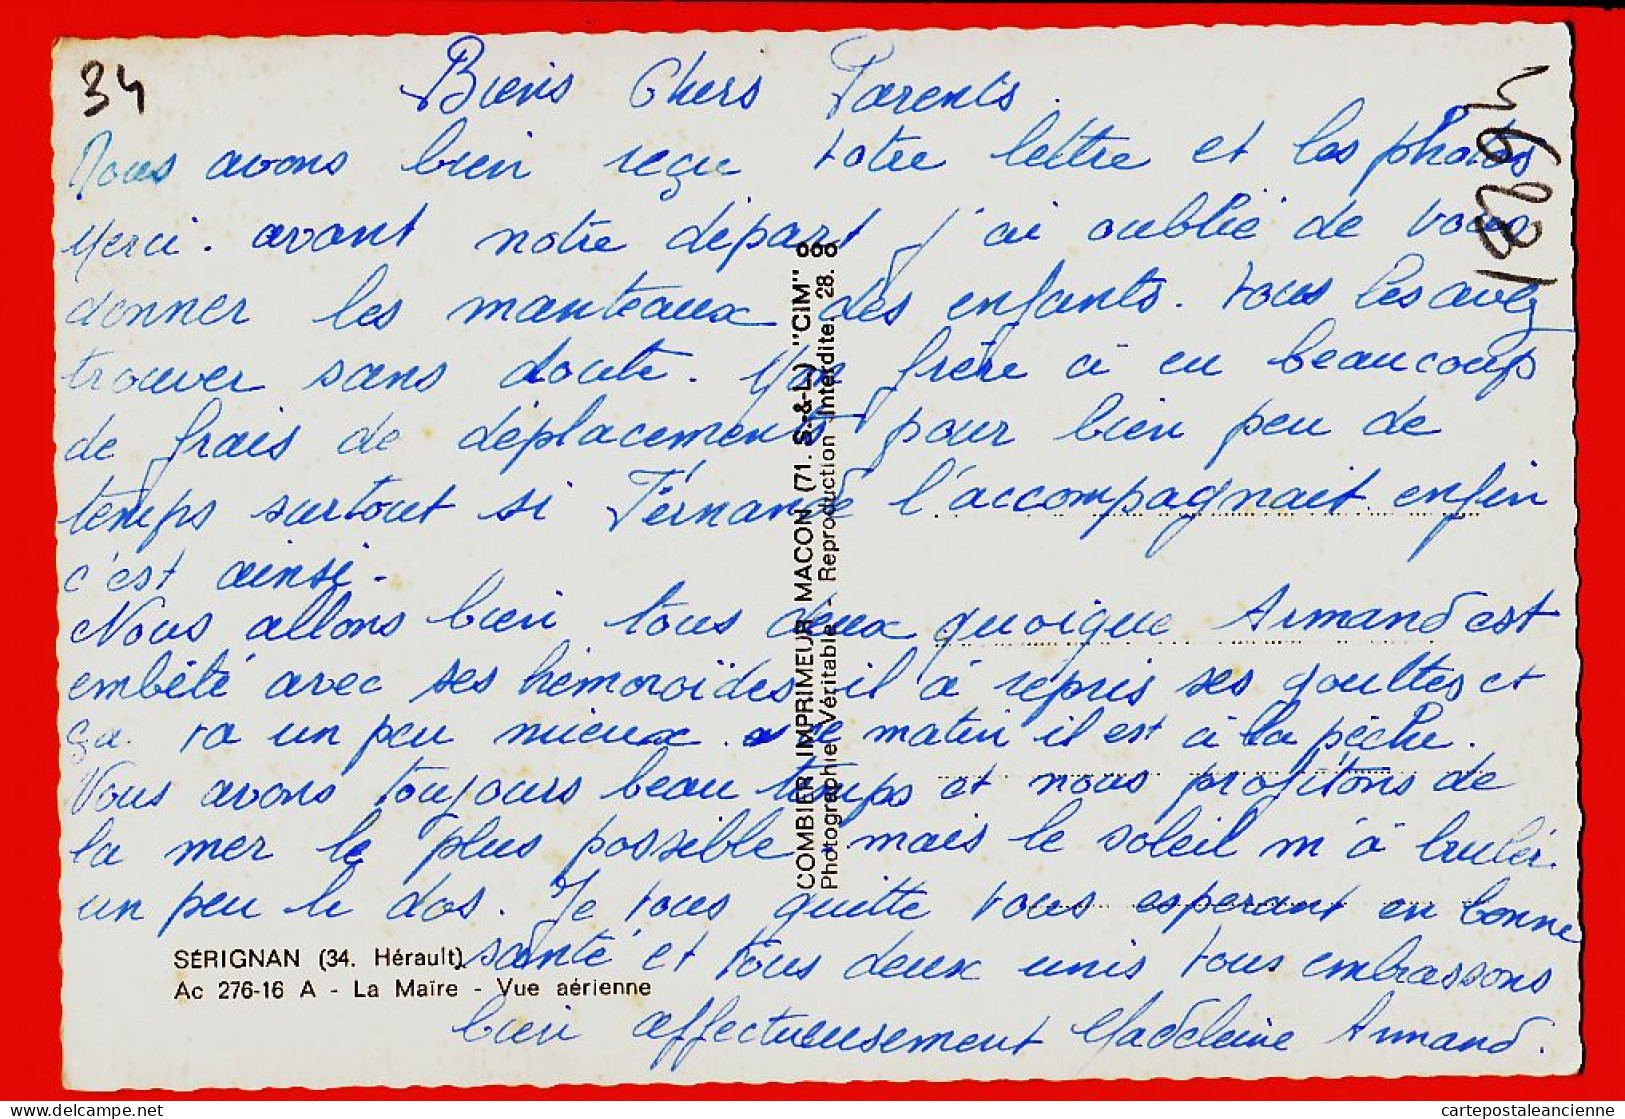 34
Biens Chers Parents.
Nous avons bien reçu votre lettre et les photos
Merci. avant notre départ j'ai oublié de vous
donner les manteaux des enfants. vous les avez
trouver sans doute. Mon frère à eu beaucoup
de frais de déplacements pour bien peu de
temps surtout si Fernande l'accompagnait enfin
c'est ainsi.
Nous allons bien tous deux quoique Armand est
embêté avec ses hémoroïdes il à repris ses goultes et
ça va un peu mieux. ce matin il est à la pêche.
Nous avons toujours beau temps et nous profitons de
la mer le plus possible mais le soleil m'à bruler
un peu le dos. Je vous quitte vous esperant en bonne
santé et tous deux unis vous embrassons
bien affectueusement Madeleine Armand.
SÉRIGNAN (34. Hérault)
Ac 276-16 A - La Maïre - Vue aérienne
COMBIER IMPRIMEUR MACON (71. S.-&-L.) "CIM"
Photographie Véritable - Reproduction Interdite. 28.
cartepostaleancienne